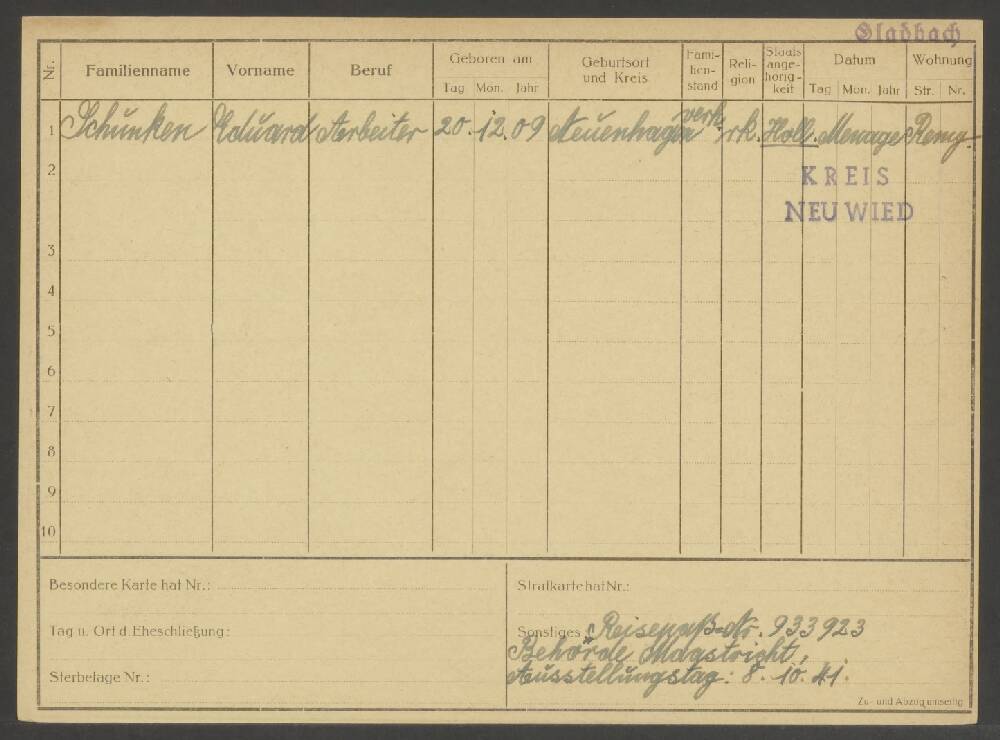 Gladbach
Nr. Familienname Vorname Beruf Geboren am Tag Mon. Jahr Geburtsort und Kreis Fami-lien-stand Reli-gion Staats-ange-hörig-keit Datum Tag Mon. Jahr Wohnung Str. Nr.
1 Schunken Eduard Arbeiter 20. 12. 09 Neuenhagen verh. rk. Holl. Menage Remy.
2 KREIS
NEUWIED
3
4
5
6
7
8
9
10
Besondere Karte hat Nr.:
Tag u. Ort d. Eheschließung:
Sterbetage Nr.:
Strafkarte hat Nr.:
Sonstiges: Reisepaß-Nr. 933923
Behörde Magstricht,
Ausstellungstag: 8. 10. 41.
Zu- und Abzug umseitig